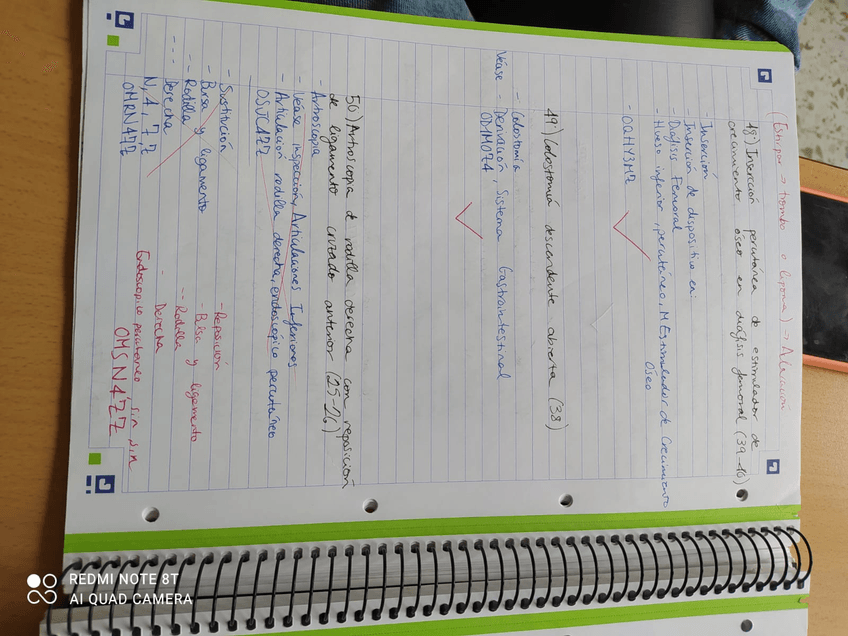 (Extirpar → trombo o lipoma) → Ablación
48) Inserción percutánea de estimulador de
crecimiento óseo en diáfisis femoral (39-40)
- Inserción
- Inserción de dispositivo en:
- Diáfisis Femoral
- Hueso inferior, percutáneo, M Estimulador de Crecimiento
Óseo
- OQHY3MZ
49) Colostomía descendente abierta (38)
- Colostomía
Véase - Derivación, Sistema Gastrointestinal
OD1M0Z4
50) Artroscopia de rodilla derecha con reposición
de ligamento cruzado anterior (25-26)
- Artroscopia
- Véase inspección, Articulaciones Inferiores
- Articulación rodilla derecha, endoscópico percutáneo
OSJC4ZZ
- Sustitución
- Bolsa y ligamento
-- Rodilla
--- Derecha
N, 4, Z Z
OMRN4ZZ
- Reposición
- Bolsa y ligamento
-- Rodilla
- Derecha
Endoscopico percutaneo sin
OMSN4ZZ
REDMI NOTE 8T
AI QUAD CAMERA